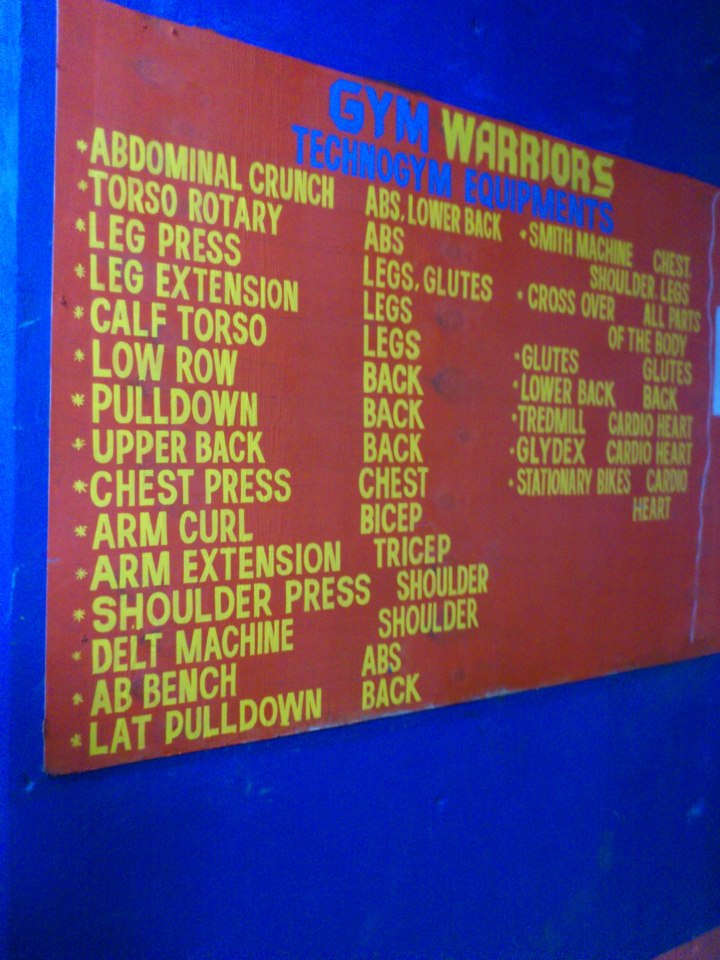 GYM WARRIORS
TECHNOGYM EQUIPMENTS
*ABDOMINAL CRUNCH ABS, LOWER BACK
*TORSO ROTARY ABS
*LEG PRESS LEGS, GLUTES
*LEG EXTENSION LEGS
*CALF TORSO LEGS
*LOW ROW BACK
*PULLDOWN BACK
*UPPER BACK BACK
*CHEST PRESS CHEST
*ARM CURL BICEP
*ARM EXTENSION TRICEP
*SHOULDER PRESS SHOULDER
*DELT MACHINE SHOULDER
*AB BENCH ABS
*LAT PULLDOWN BACK
*SMITH MACHINE CHEST,
SHOULDER, LEGS
*CROSS OVER ALL PARTS
OF THE BODY
*GLUTES GLUTES
*LOWER BACK BACK
*TREDMILL CARDIO HEART
*GLYDEX CARDIO HEART
*STATIONARY BIKES CARDIO
HEART